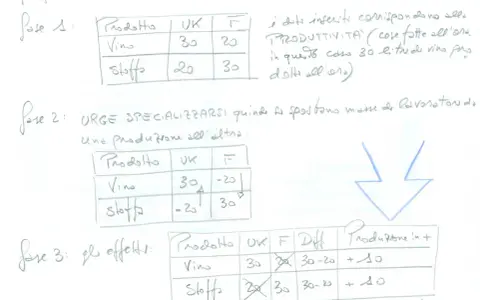 fase 1:
Prodotto UK F
Vino 30 20
Stoffa 20 30
i dati inseriti corrispondono alla
PRODUTTIVITA' (cose fatte all'ora
in questo caso 30 litri di vino pro
dotte all'ora)
fase 2: URGE SPECIALIZZARSI quindi si spostano masse di lavoratori da
una produzione all'altra
Prodotto UK F
Vino 30 -20
Stoffa -20 30
fase 3: gli effetti:
Prodotto UK F Diff Produzione in +
Vino 30 20 30-20 +10
Stoffa 20 30 30-20 +10